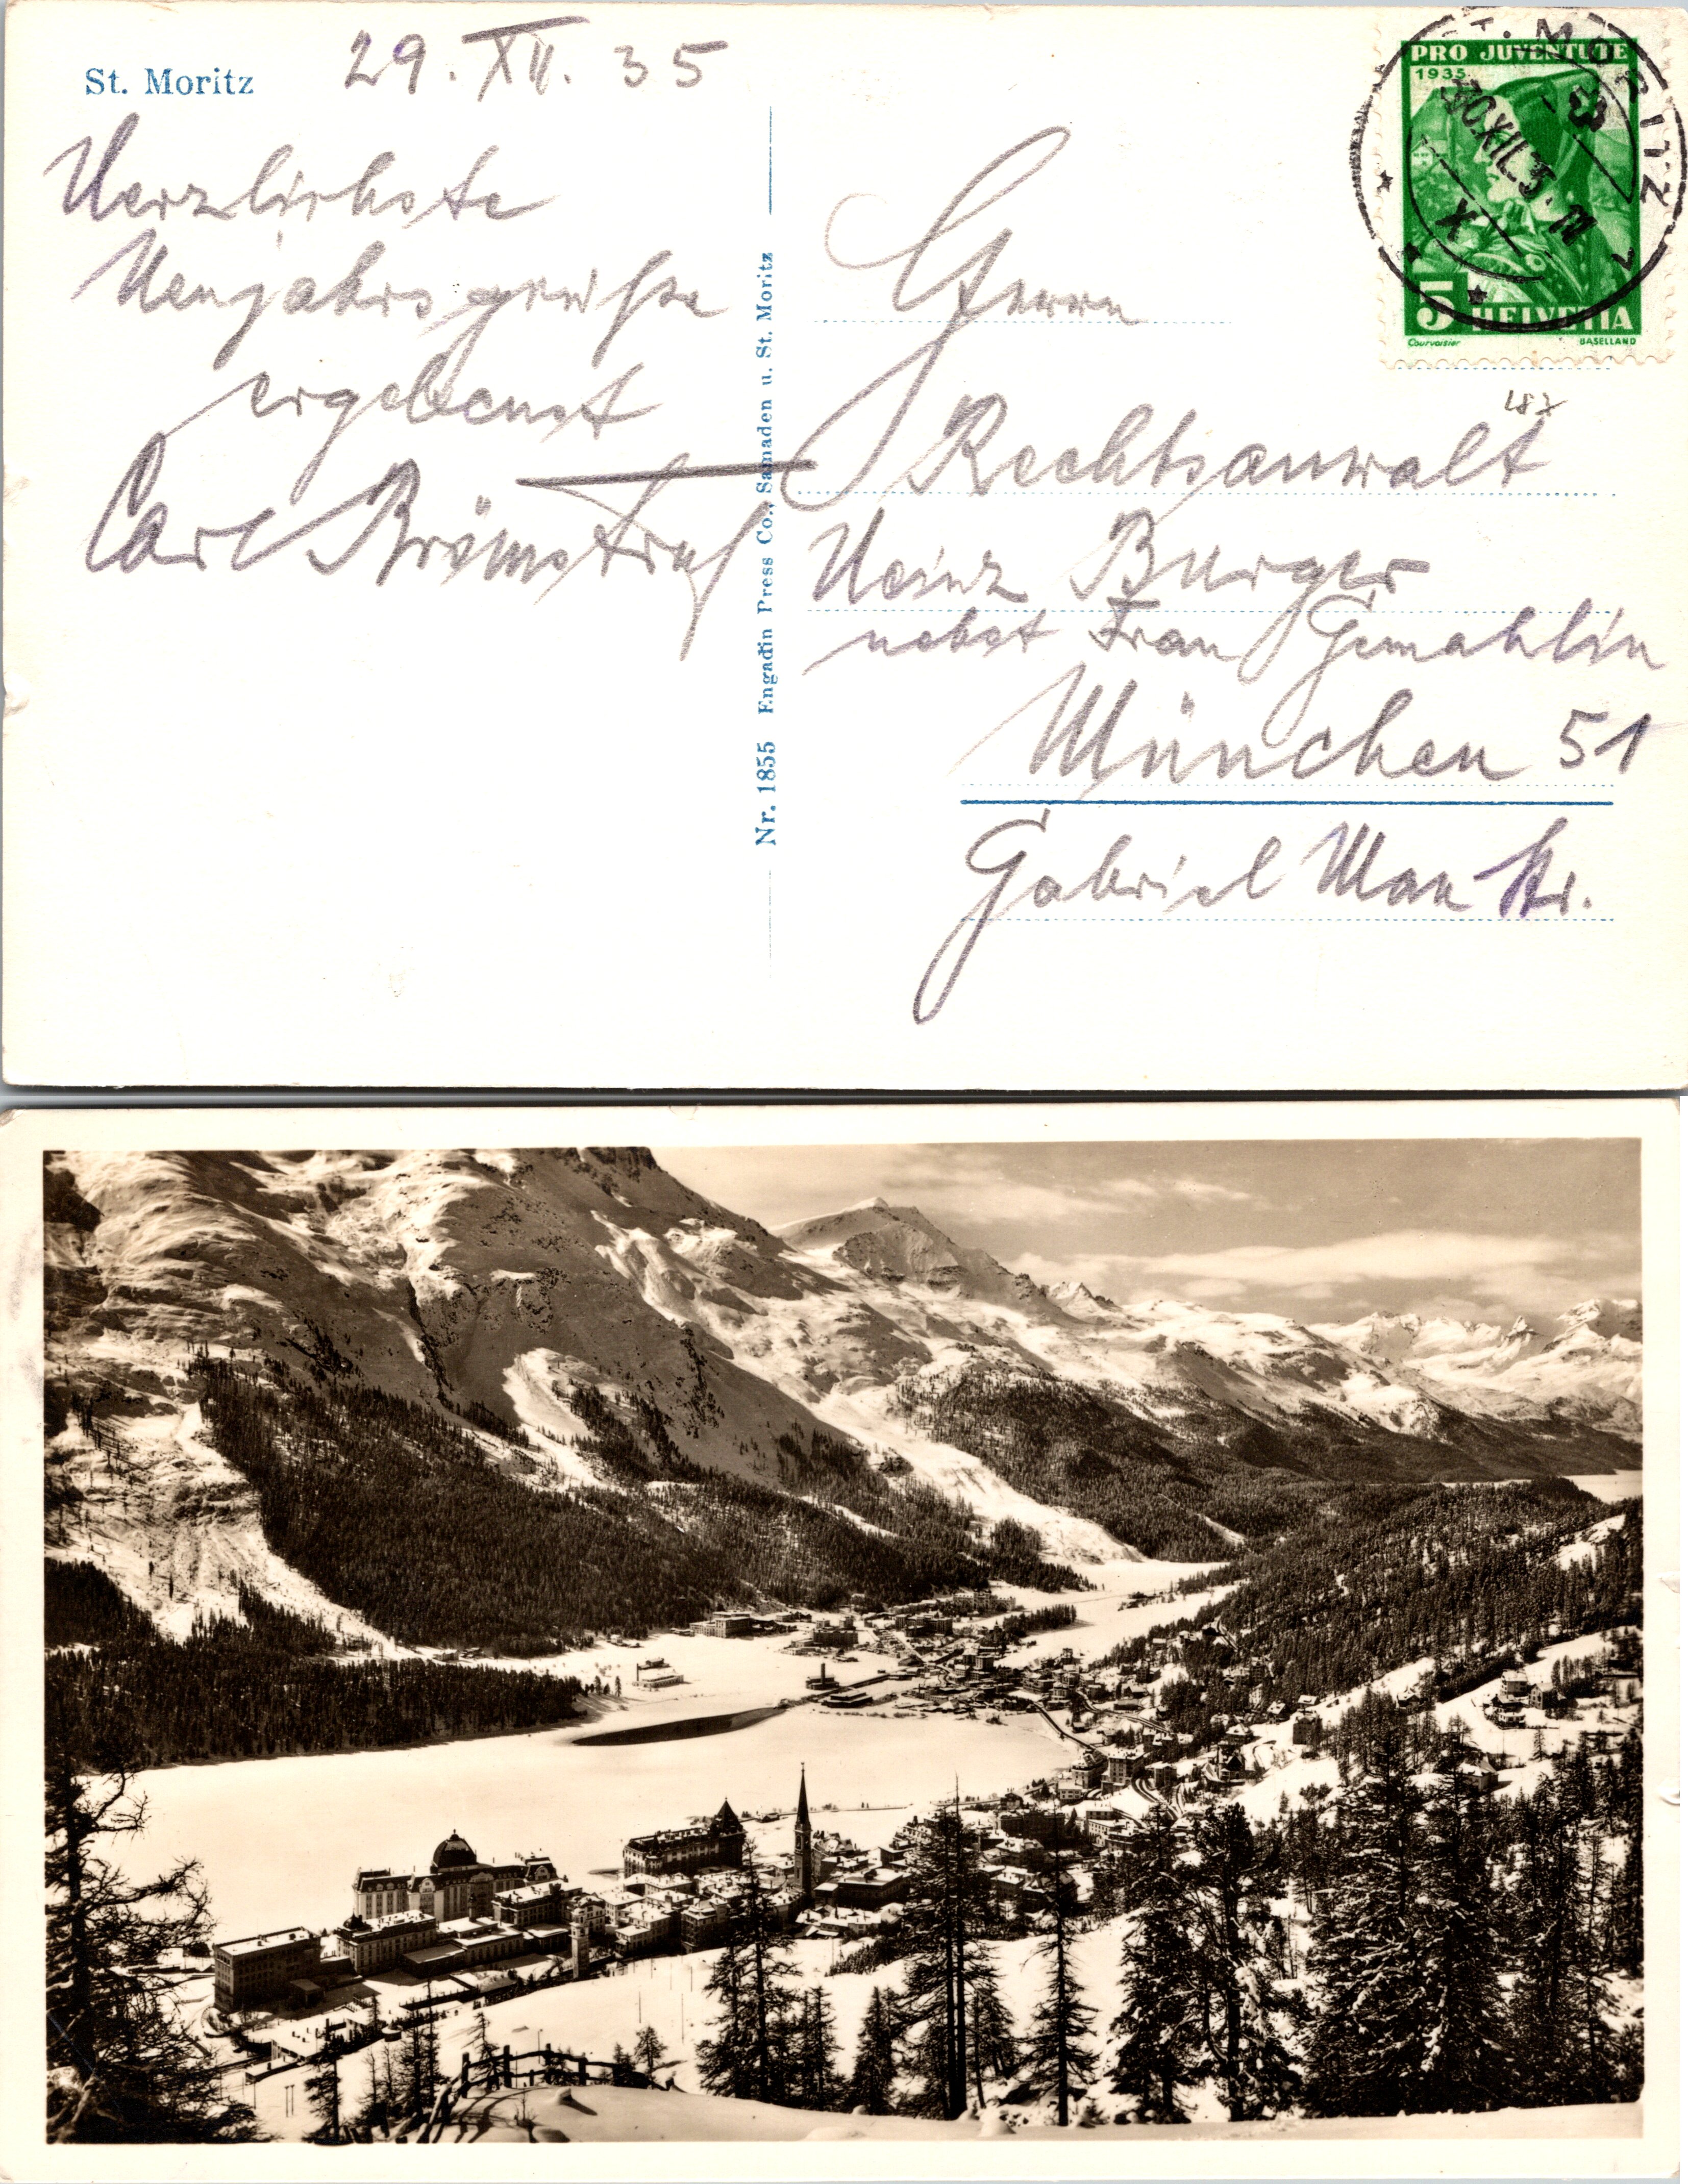 St. Moritz
29. XII. 35
Herzlichste
Neujahrsgrüße
ergebenst
Carl
Nr. 1855 Engadin Press Co., Samaden u. St. Moritz
Herrn
Rechtsanwalt
Heinz Burger
nebst Frau Gemahlin
München 51
Gabriel Max Str.
PRO JUVENTUTE
1935
5 HELVETIA
Courvoisier BASELLAND
ST. MORITZ
30.XII.35.11
X
487